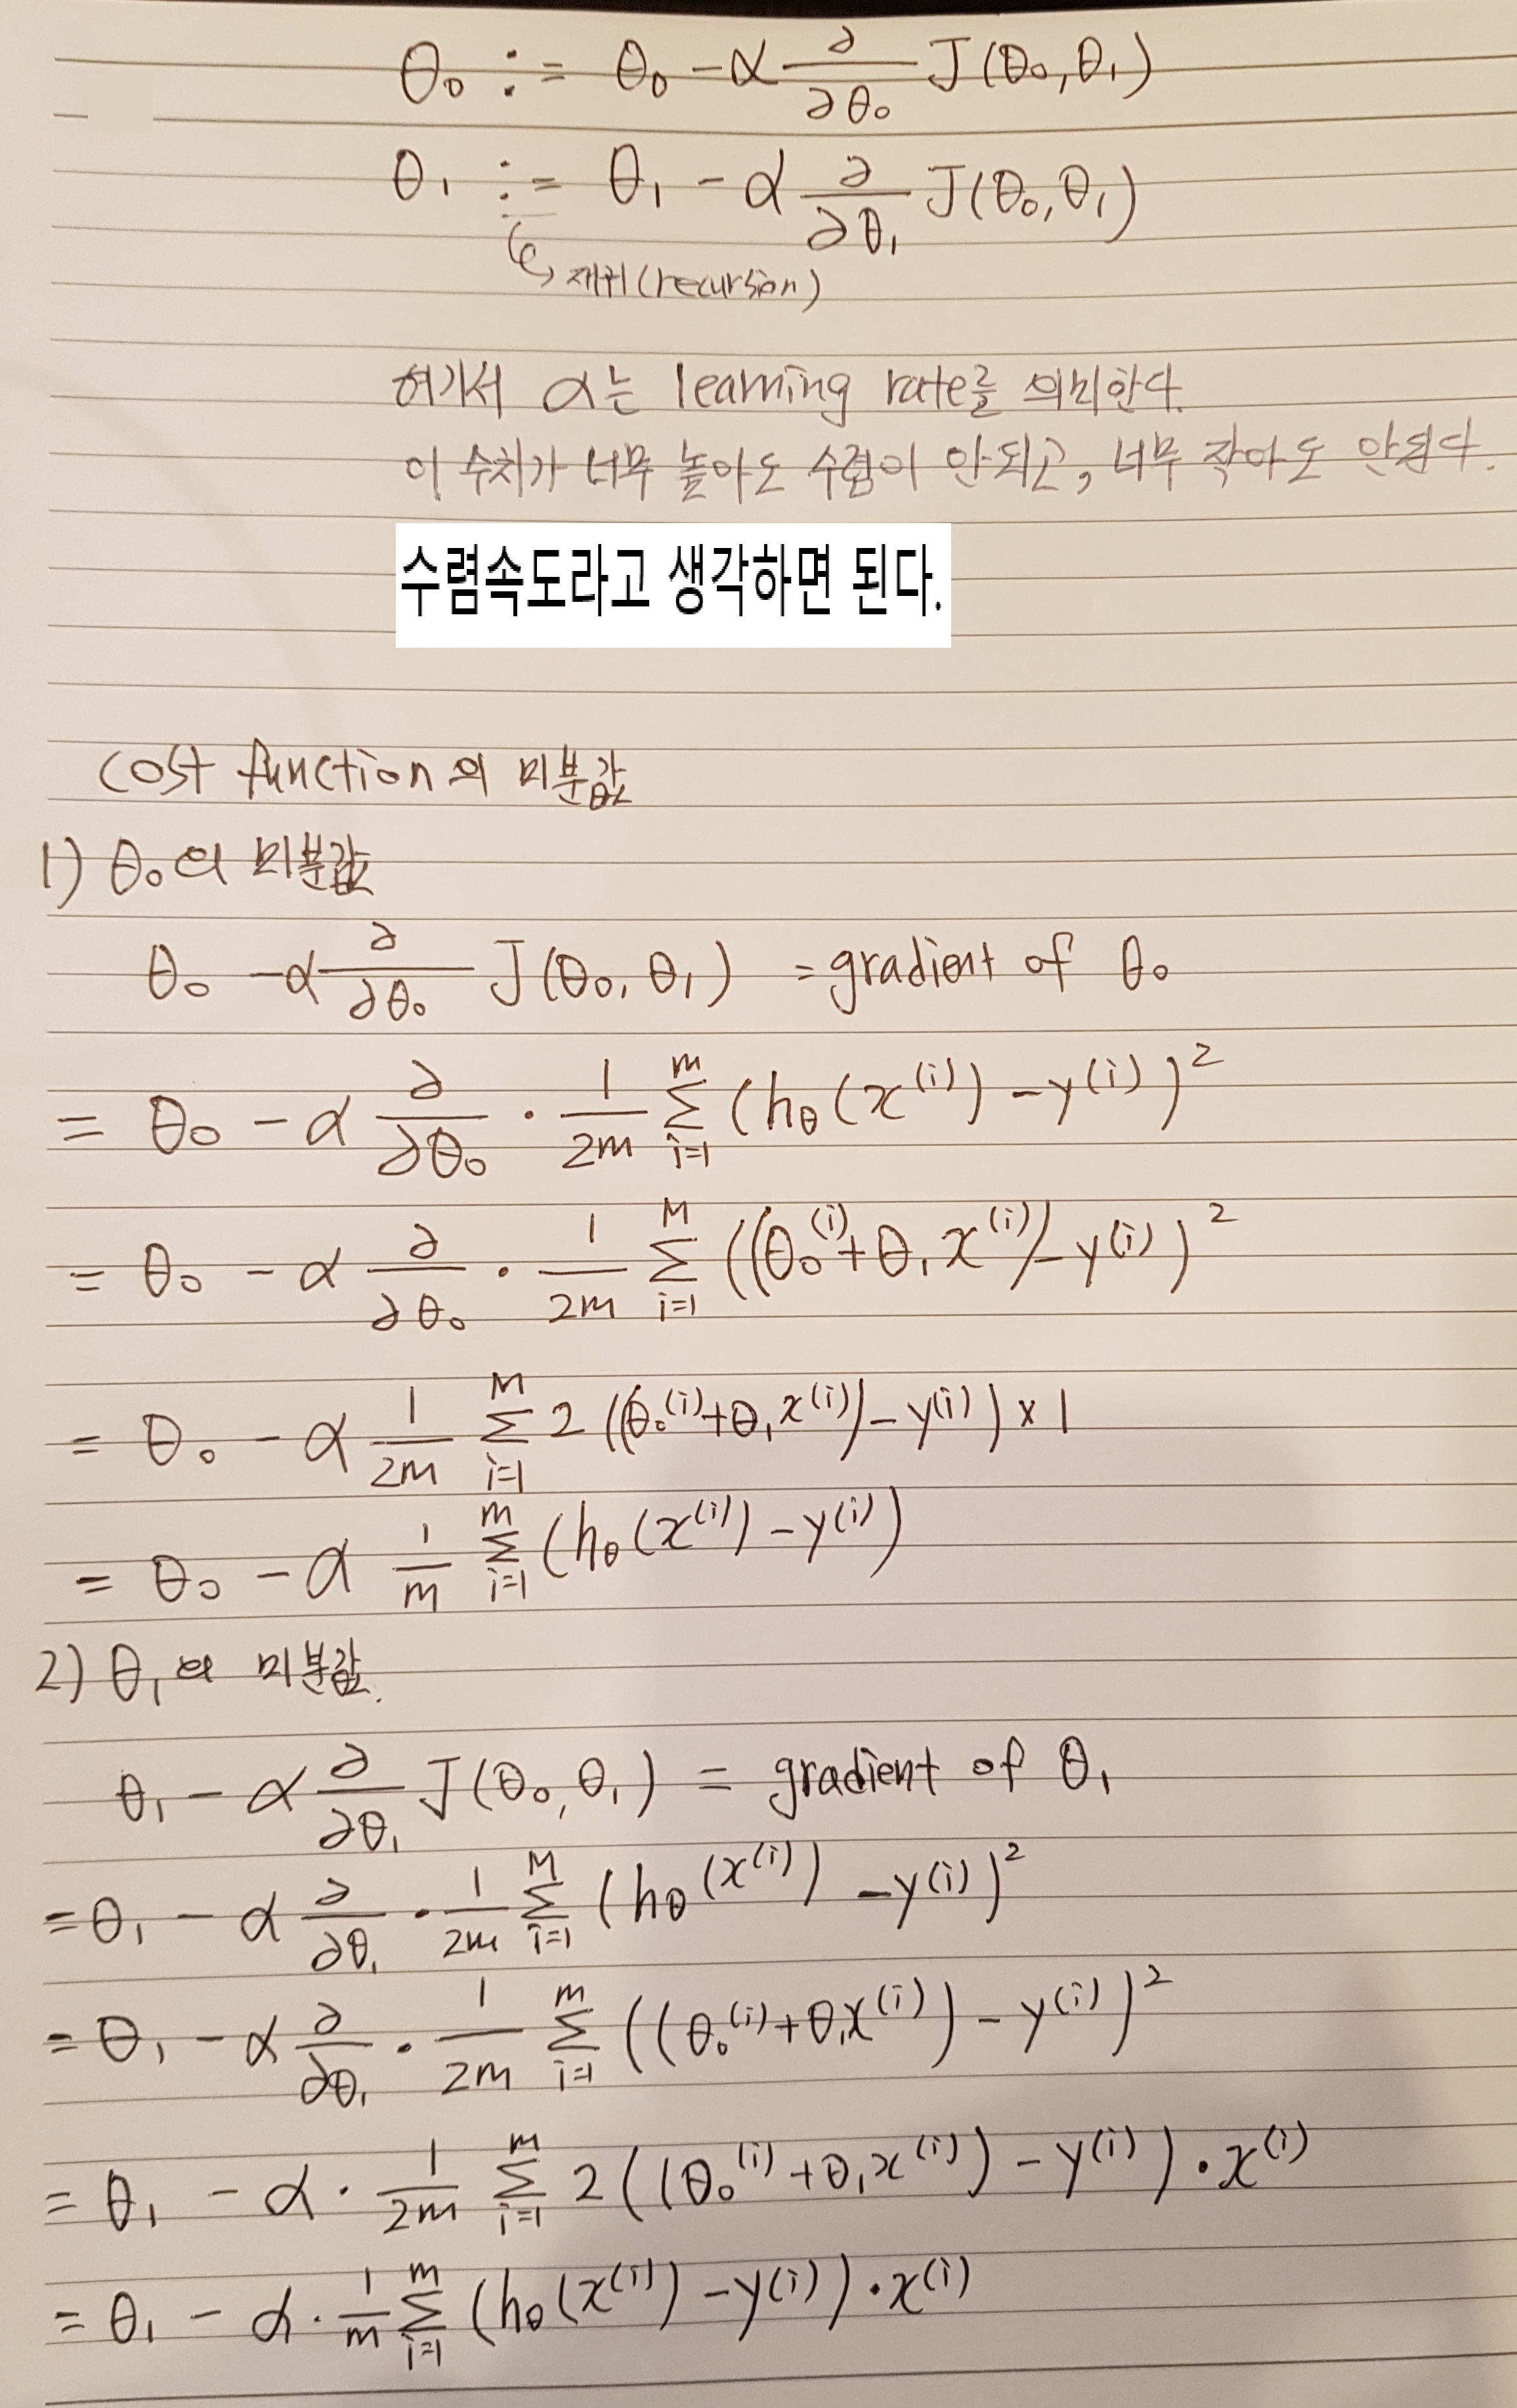 θ₀ := θ₀ - α ∂/∂θ₀ J(θ₀, θ₁)
θ₁ := θ₁ - α ∂/∂θ₁ J(θ₀, θ₁)
재귀(recursion)
여기서 α는 learning rate를 의미한다.
이 수치가 너무 높아도 수렴이 안되고, 너무 작아도 안된다.
수렴속도라고 생각하면 된다.
cost function의 미분값
1) θ₀의 미분값
θ₀ - α ∂/∂θ₀ J(θ₀, θ₁) = gradient of θ₀
= θ₀ - α ∂/∂θ₀ · 1/2m Σ_{i=1}^{m} (h_θ(x^(i)) - y^(i))²
= θ₀ - α ∂/∂θ₀ · 1/2m Σ_{i=1}^{M} ((θ₀^(i) + θ₁x^(i)) - y^(i))²
= θ₀ - α 1/2m Σ_{i=1}^{M} 2((θ₀^(i) + θ₁x^(i)) - y^(i)) × 1
= θ₀ - α 1/m Σ_{i=1}^{m} (h_θ(x^(i)) - y^(i))
2) θ₁의 미분값.
θ₁ - α ∂/∂θ₁ J(θ₀, θ₁) = gradient of θ₁
= θ₁ - α ∂/∂θ₁ · 1/2m Σ_{i=1}^{M} (h_θ(x^(i)) - y^(i))²
= θ₁ - α ∂/∂θ₁ · 1/2m Σ_{i=1}^{m} ((θ₀^(i) + θ₁x^(i)) - y^(i))²
= θ₁ - α · 1/2m Σ_{i=1}^{m} 2((θ₀^(i) + θ₁x^(i)) - y^(i)) · x^(i)
= θ₁ - α · 1/m Σ_{i=1}^{m} (h_θ(x^(i)) - y^(i)) · x^(i)